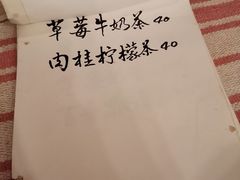 草莓牛奶茶40
肉桂柠檬茶40